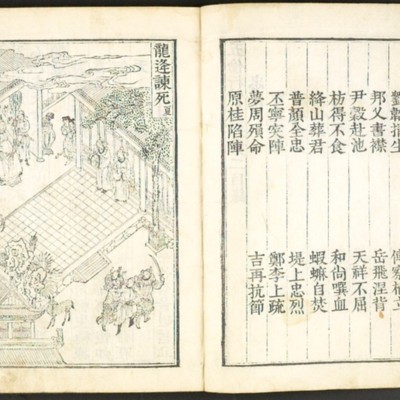 劉韐捐生 傅察植立
邦乂書襟 岳飛涅背
尹穀赴池 天祥不屈
枋得不食 和尚噀血
絳山葬君 蝦蟆自焚
普顏全忠 堤上忠烈
丕寧突陣 鄭李上疏
夢周殞命 吉再抗節
原桂陷陣
龍逄諫死 夏